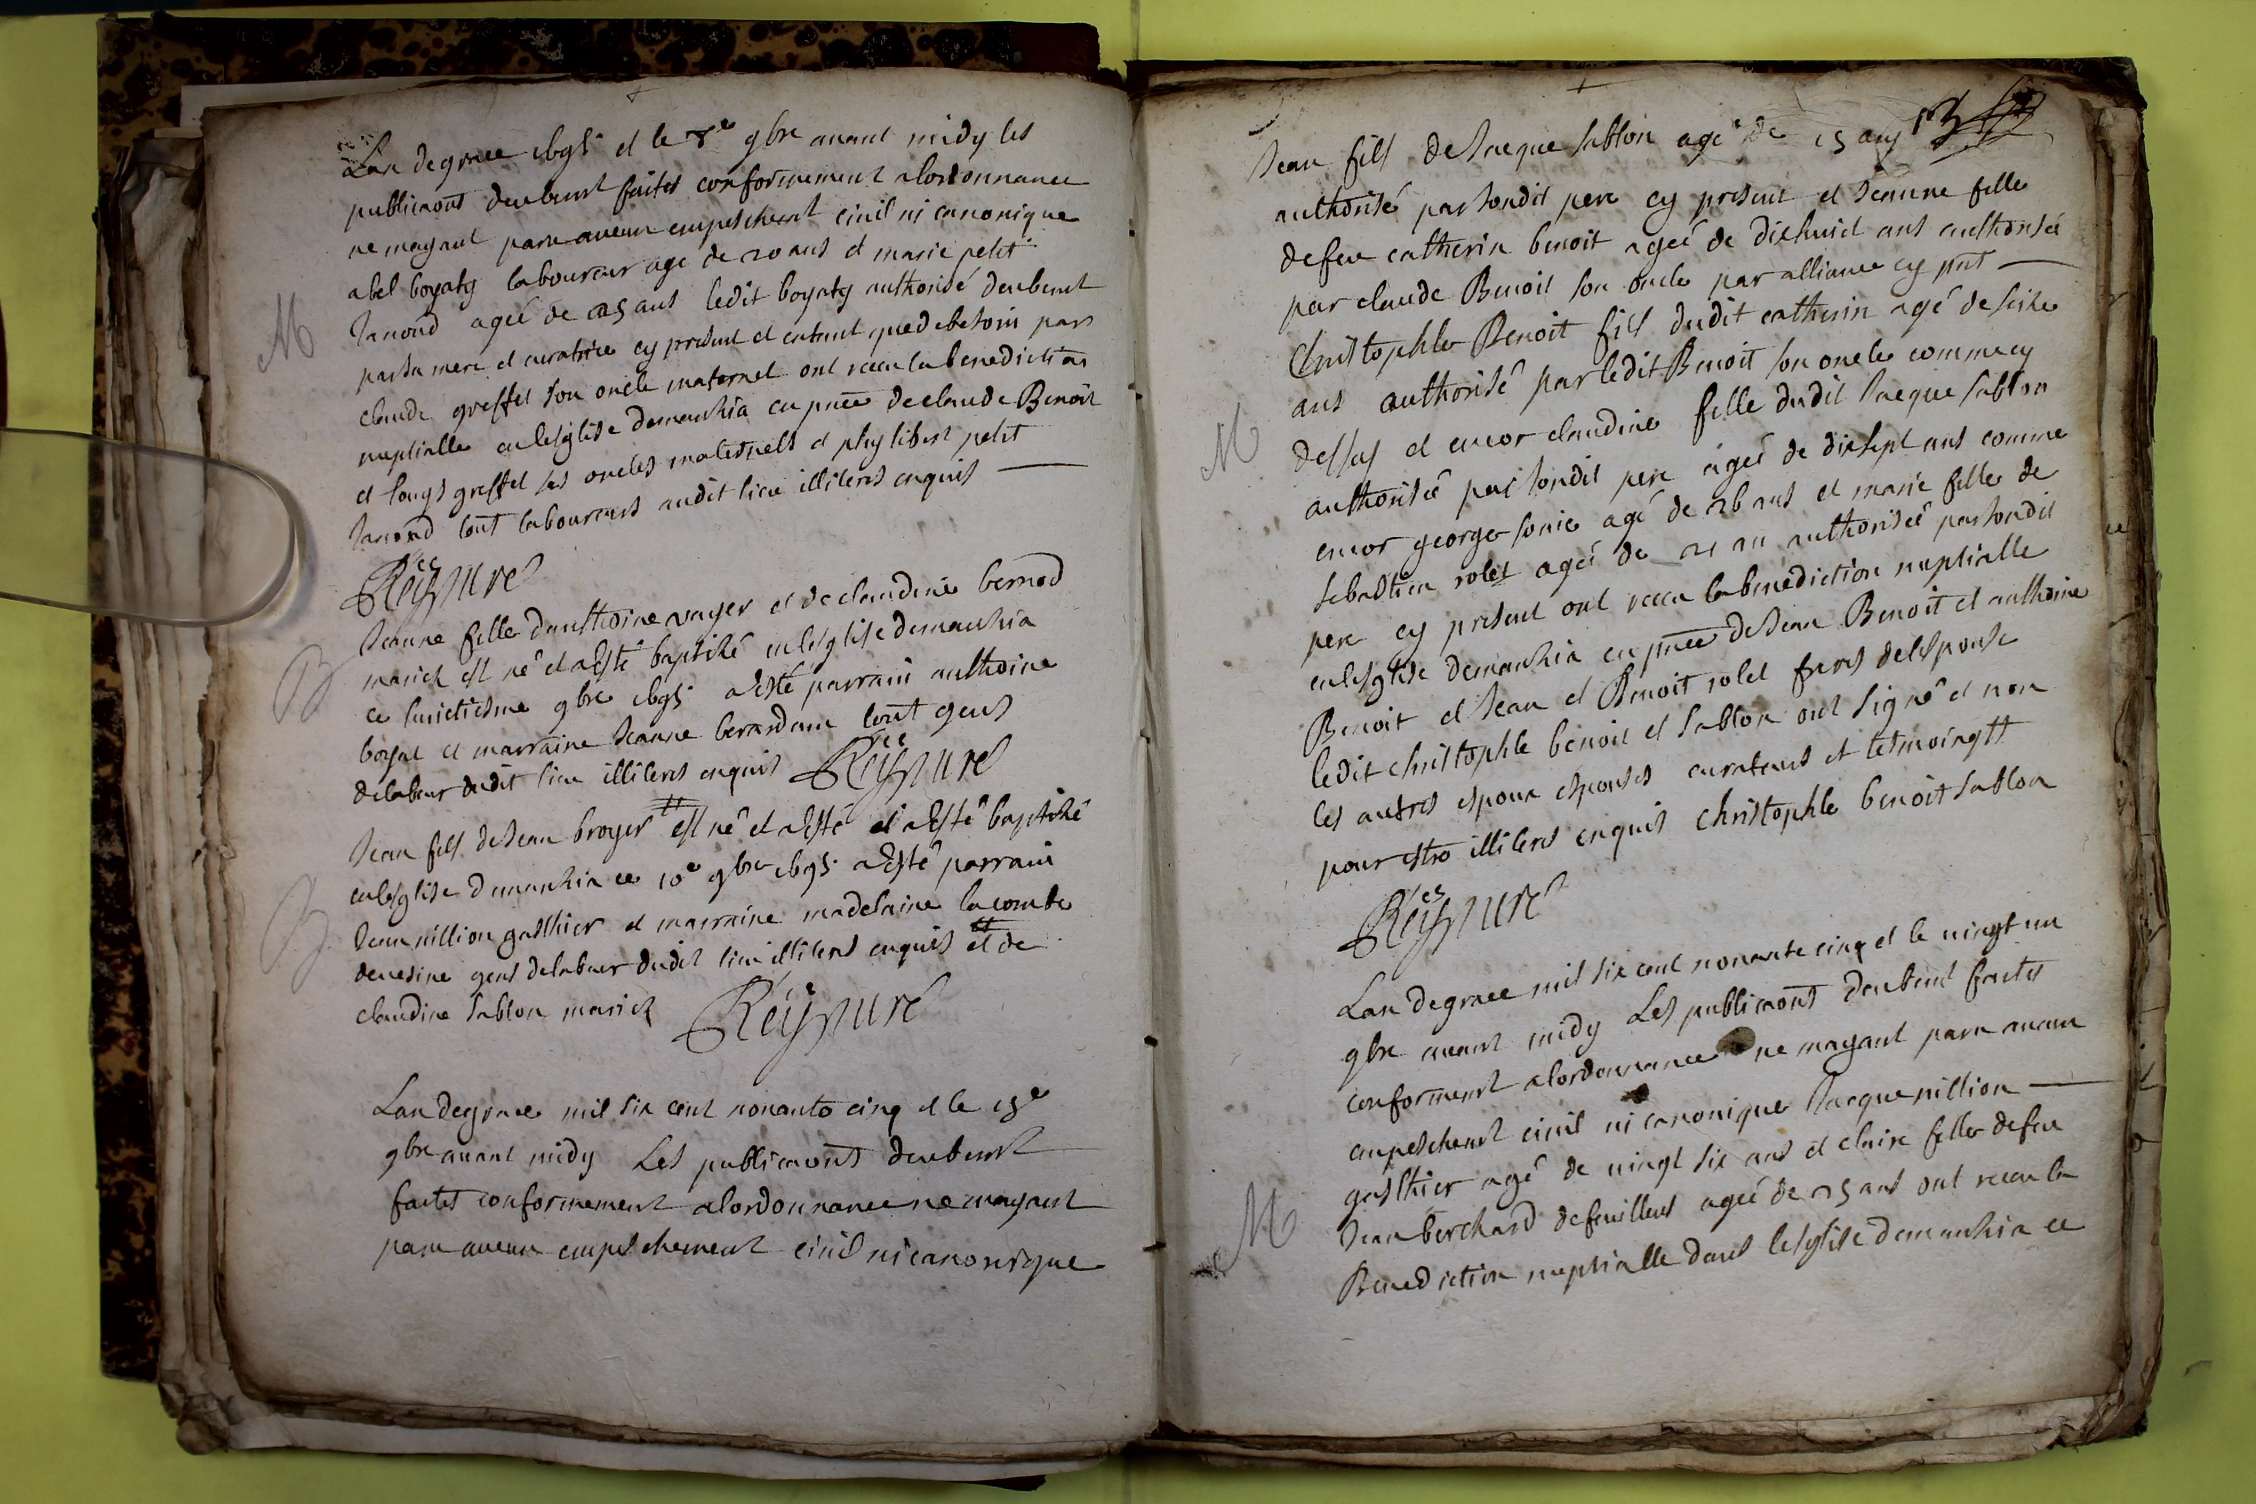 Lan de grace 1695 et le 8e 9bre avant midy les
publicaons deubemt faites conformement alordonnance
ne mayant paru aucun empeschemt civil ni canonique
abel boyaty laboureur agé de 20 ans et marie petit
Janond ageé de 25 ans ledit boyaty authorisé deubemt
par sa mere et curatrice cy present et entant que de besoin par
claude greffet son oncle maternel ont receu la benediction
nuptialle en lesglise demanhia en pnce de claude Benoit
et louys greffet ses oncles maternels et phylibert petit
Janond tout laboureurs audit lieu illiteres enquis
Reÿ curé
Jeanne fille danthoine vayer et de claudine bernod
mariez est né et aesté baptisé en lesglise demanhia
ce huictiesme 9bre 1695 aesté parrain anthoine
boyat et marraine Jeanne berardam tout gens
delabeur dudit lieu illiteres enquis Reÿ curé
Jean fils de Jean broyer # est né et aesté et aesté baptisé
en lesglise demanhia ce 10e 9bre 1695 aesté parrain
Jean nillion gasthier et marraine madelaine lacombe
de vesine gens delabeur dudit lieu illiteres enquis # et de
claudine sablon mariez Reÿ curé
Lan de grace mil six cent nonante cinq et le 15e
9bre avant midy Les publicaons deubemt
faites conformement alordonnance ne mayant
paru aucun empeschement civil ni canonique
Jean fils de Jacque sablon agé de 25 ans 13
authorisé par sondit pere cy present et Jeanne fille
defeu catherin benoit ageé de dixhuict ans authoriseé
par claude Benoit son oncle par alliance cy pnt
Christophle Benoit fils dudit catherin agé de seize
ans authorisé par ledit Benoit son oncle comme cy
dessus et encor claudine fille dudit Jacque sablon
authoriseé par sondit pere ageé de dixsept ans comme
encor george sonie agé de 26 ans et marie fille de
sebastien rolet ageé de 21 an authoriseé par sondit
pere cy present ont receu la benediction nuptialle
en lesglise demanhia en pnce de Jean Benoit et anthoine
Benoit et Jean et Benoit rolet freres de lespouse
ledit christophle benoit et sablon ont signé et non
les autres espoux espouses curateurs et tesmoings
pour estre illiteres enquis christophle benoit sablon
Reÿ curé
Lan de grace mil six cent nonante cinq et le vingt un
9bre avant midy Les publicaons deubemt faites
conformemt alordonnance ne mayant paru aucun
empeschemt civil ni canonique Jacque nillion
gasthier agé de vingt six ans et claire fille defeu
Jean berchard defeuillens ageé de 25 ans ont receu la
Benediction nuptialle dans lesglise demanhia ce
M
B
B
M
M